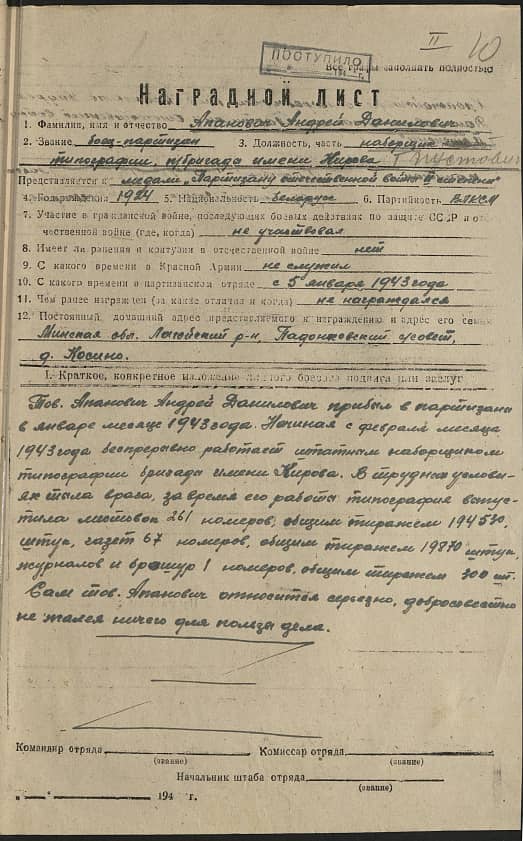 II 10
ПОСТУПИЛО
194 г.
Все графы заполнять полностью
Наградной лист
1. Фамилия, имя и отчество Апанович Андрей Данилович
2. Звание боец-партизан 3. Должность, часть наборщик
типографии, п/бригада имени Кирова
Представляется к медали „Партизану отечественной войны II степени"
4. Год рождения 1924 5. Национальность беларус 6. Партийность ВЛКСМ
7. Участие в гражданской войне, последующих боевых действиях по защите СССР и оте-
чественной войне (где, когда) не участвовал
8. Имеет ли ранения и контузии в отечественной войне нет
9. С какого времени в Красной Армии не служил
10. С какого времени в партизанском отряде с 5 января 1943 года
11. Чем ранее награжден (за какие отличия и когда) не награждался
12. Постоянный домашний адрес представляемого к награждению и адрес его семьи
Минская обл. Логойский р-н, с/совет,
д. Косино.
1. Краткое, конкретное изложение личного боевого подвига или заслуг
Тов. Апанович Андрей Данилович прибыл в партизаны
в январе месяце 1943 года. Начиная с февраля месяца
1943 года беспрерывно работает штатным наборщиком
типографии бригады имени Кирова. В трудных услови-
ях тыла врага, за время его работы типография выпус-
тила листовок 261 номеров, общим тиражем 194530,
штук, газет 67 номеров, общим тиражем 19870 штук
журналов и брошюр 1 номеров, общим тиражем 300 шт.
Сам тов. Апанович относится серьезно, добросовестно
не жалея ничего для пользы дела.
Командир отряда Комиссар отряда
(звание) (звание)
Начальник штаба отряда
(звание)
„ " 194 г.